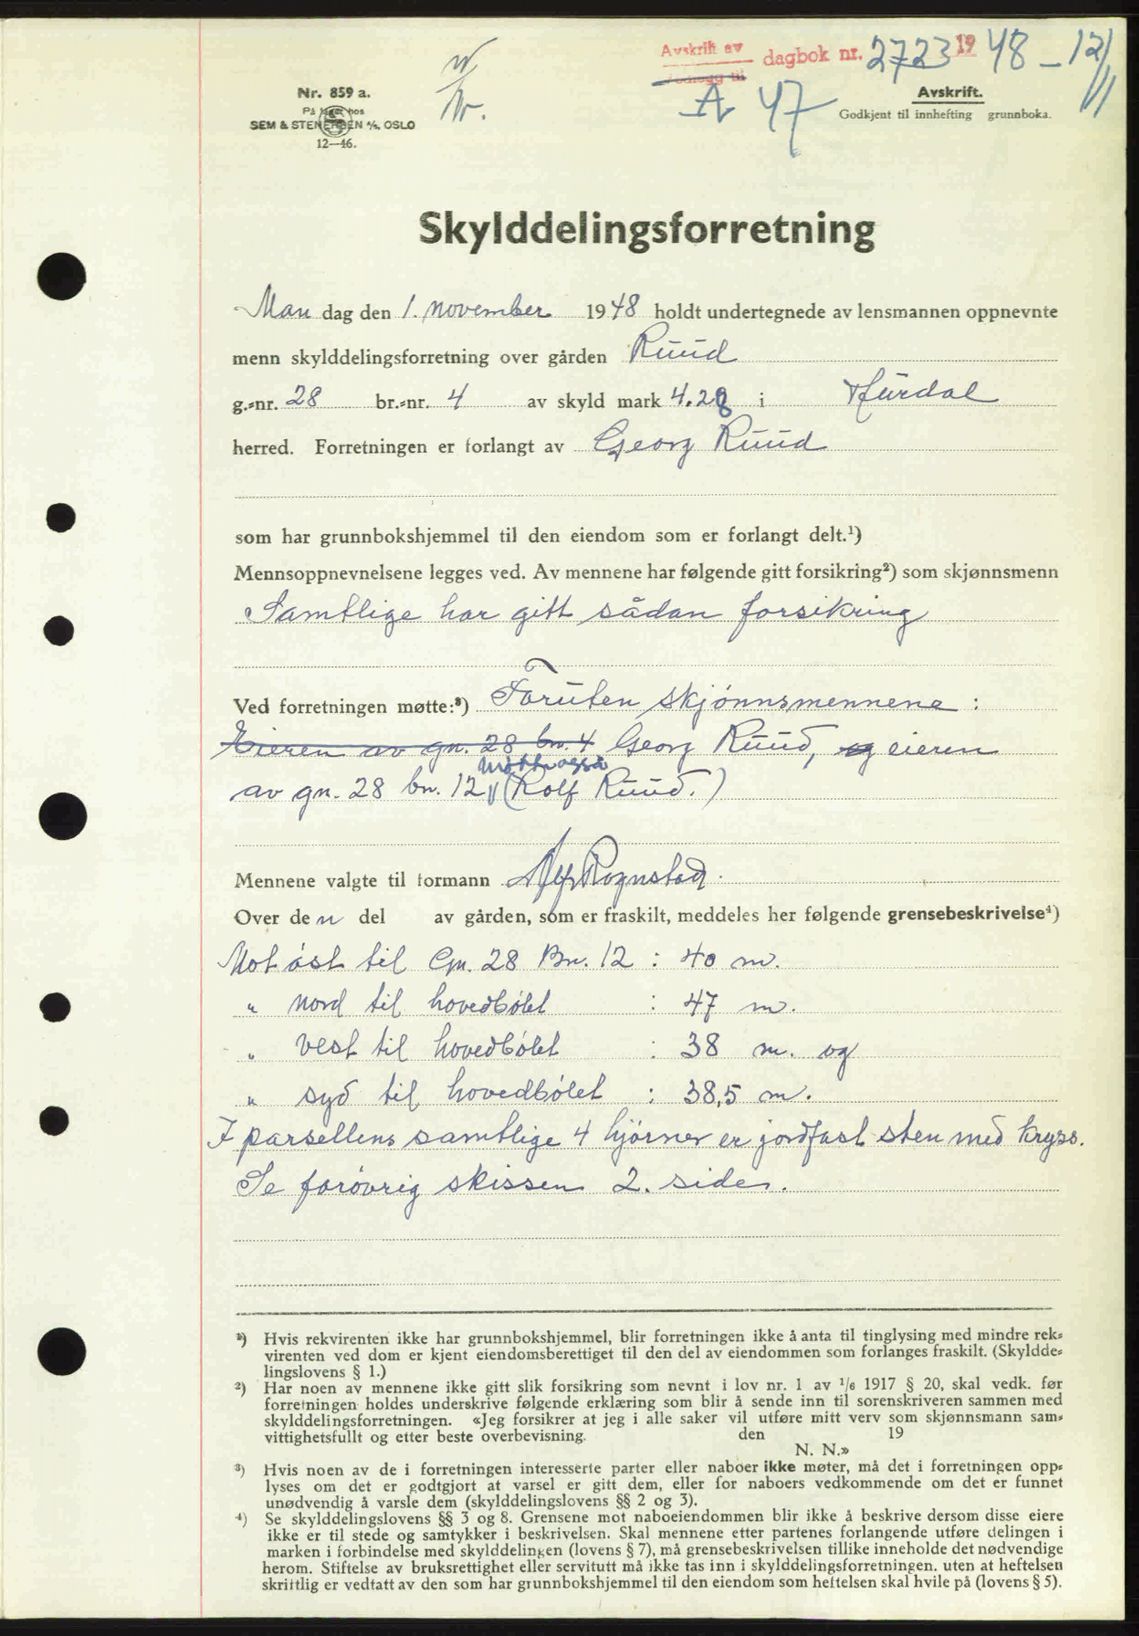 Avskrift av dagbok nr. 2723 19 48 – 12/11
A 47
Nr. 859 a.
På lager hos
SEM & STENERSEN A/S, OSLO
12—46.
Avskrift.
Godkjent til innhefting grunnboka.
Skylddelingsforretning
Man dag den 1. november 1948 holdt undertegnede av lensmannen oppnevnte
menn skylddelingsforretning over gården Ruud
g.-nr. 28 br.-nr. 4 av skyld mark 4.28 i Hurdal
herred. Forretningen er forlangt av Georg Ruud
som har grunnbokshjemmel til den eiendom som er forlangt delt.¹)
Mennsoppnevnelsene legges ved. Av mennene har følgende gitt forsikring²) som skjønnsmenn
Samtlige har gitt sådan forsikring
Ved forretningen møtte:³) Foruten skjønnsmennene :
Eieren av gn. 28 bn. 4 Georg Ruud, og eieren
møtte også
av gn. 28 bn. 12 (Rolf Ruud.)
Mennene valgte til formann Alf Rognstad.
Over den del av gården, som er fraskilt, meddeles her følgende grensebeskrivelse⁴)
Mot øst til Gn. 28 Bn. 12 : 40 m.
" nord til hovedbølet : 47 m.
" vest til hovedbølet : 38 m. og
" syd til hovedbølet : 38,5 m.
I parsellens samtlige 4 hjørner er jordfast sten med kryss.
Se forøvrig skissen 2. side.
¹) Hvis rekvirenten ikke har grunnbokshjemmel, blir forretningen ikke å anta til tinglysing med mindre rek-
virenten ved dom er kjent eiendomsberettiget til den del av eiendommen som forlanges fraskilt. (Skyldde-
lingslovens § 1.)
²) Har noen av mennene ikke gitt slik forsikring som nevnt i lov nr. 1 av 1/6 1917 § 20, skal vedk. før
forretningen holdes underskrive følgende erklæring som blir å sende inn til sorenskriveren sammen med
skylddelingsforretningen. «Jeg forsikrer at jeg i alle saker vil utføre mitt verv som skjønnsmann sam-
vittighetsfullt og etter beste overbevisning. den 19
N. N.»
³) Hvis noen av de i forretningen interesserte parter eller naboer ikke møter, må det i forretningen opp-
lyses om det er godtgjort at varsel er gitt dem, eller for naboers vedkommende om det er funnet
unødvendig å varsle dem (skylddelingslovens §§ 2 og 3).
⁴) Se skylddelingslovens §§ 3 og 8. Grensene mot naboeiendommen blir ikke å beskrive dersom disse eiere
ikke er til stede og samtykker i beskrivelsen. Skal mennene etter partenes forlangende utføre delingen i
marken i forbindelse med skylddelingen (lovens § 7), må grensebeskrivelsen tillike inneholde det nødvendige
herom. Stiftelse av bruksrettighet eller servitutt må ikke tas inn i skylddelingsforretningen, uten at heftelsen
skriftlig er vedtatt av den som har grunnbokshjemmel til den eiendom som heftelsen skal hvile på (lovens § 5).